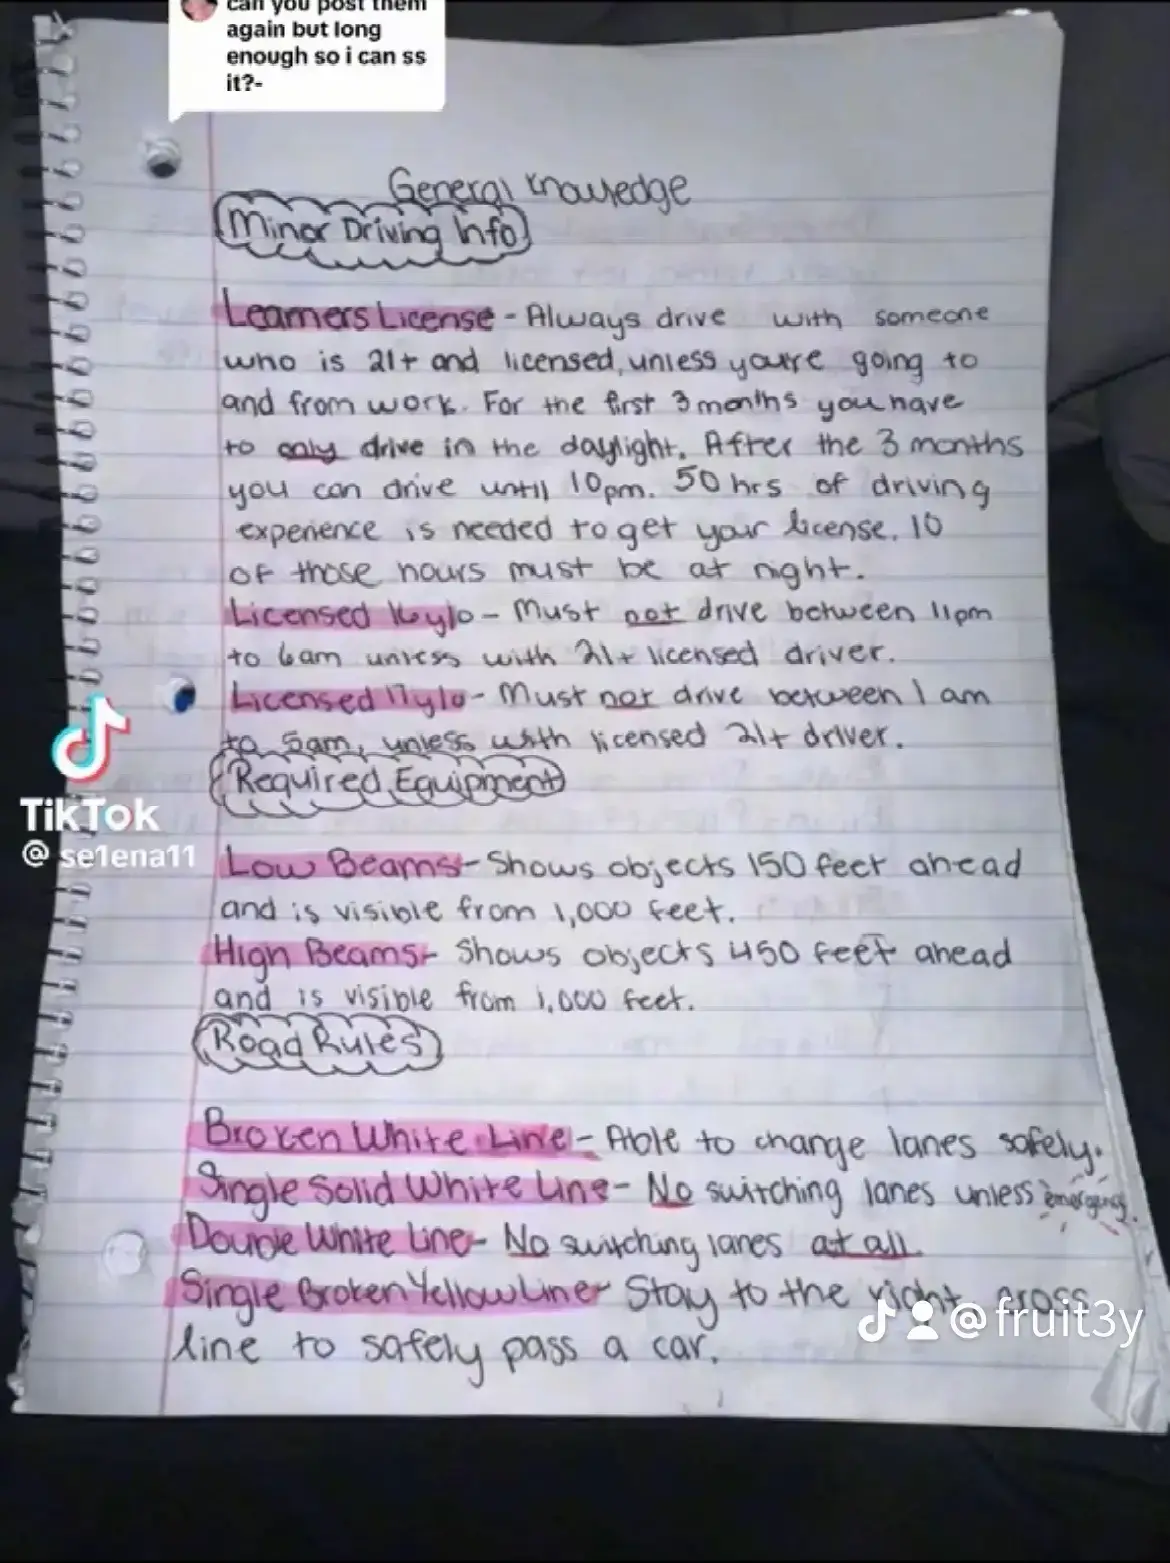 can you post them
again but long
enough so i can ss
it?-
General Knowledge
Minor Driving Info
Learners License - Always drive with someone
who is 21+ and licensed, unless you're going to
and from work. For the first 3 months you have
to only drive in the daylight. After the 3 months
you can drive until 10pm. 50 hrs of driving
experience is needed to get your license. 10
of those hours must be at night.
Licensed 16y/o - Must not drive between 11pm
to 6am unless with 21+ licensed driver.
Licensed 17y/o - Must not drive between 1 am
to 5am, unless with licensed 21+ driver.
Required Equipment
TikTok
@ se1ena11
Low Beams - Shows objects 150 feet ahead
and is visible from 1,000 feet.
High Beams - Shows objects 450 feet ahead
and is visible from 1,000 feet.
Road Rules
Broken White Line - Able to change lanes safely.
Single Solid White Line - No switching lanes unless emergency.
Double White Line - No switching lanes at all
Single Broken Yellow Line - Stay to the right, cross
line to safely pass a car.
@fruit3y